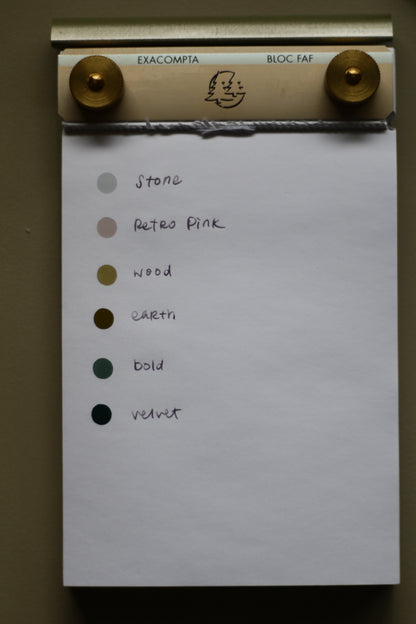 EXACOMPTA BLOC FAF
Stone
Retro Pink
wood
earth
bold
velvet